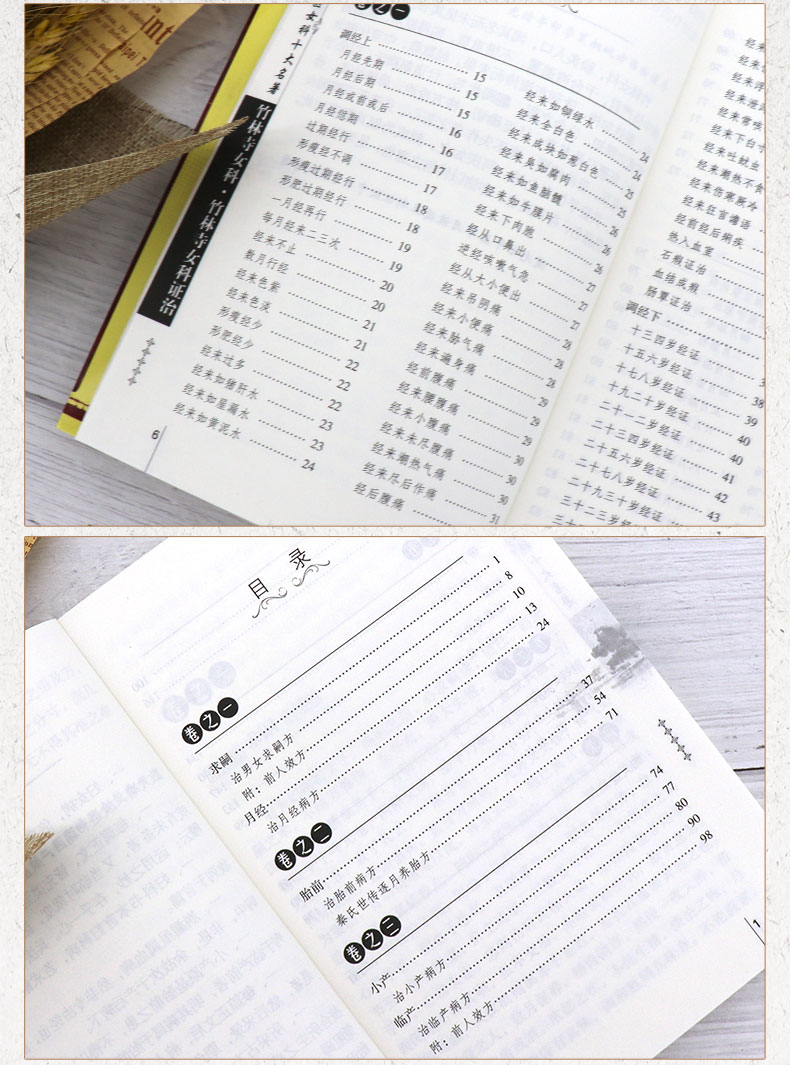 女科十大名著
竹林寺女科·竹林寺女科证治
卷之一
调经上 15
月经先期 15
月经后期 15
月经或前或后 16
月经愆期 16
过期经行 17
形瘦经不调 17
形瘦过期经行 18
形肥过期经行 18
一月经再行 19
每月经来二三次 19
经来不止 20
数月行经 20
经来色紫 21
经来色淡 21
形瘦经少 22
形肥经少 22
经来过多 22
经来如猪肝水 23
经来如屋漏水 23
经来如黄泥水 24
6
经来如铜绿水 24
经来全白色 24
经来成块如葱白色 25
经来臭如腐肉 25
经来如鱼脑髓 25
经来如牛膜片 26
经来下肉胞 26
经从口鼻出 26
逆经咳嗽气急 27
经从大小便出 27
经来吊阴痛 27
经来小便痛 28
经来胁气痛 28
经来遍身痛 28
经前腹痛 29
经来腰腹痛 29
经来小腹痛 29
经来未尽腹痛 30
经来潮热气痛 30
经来尽后作痛 30
经后腹痛 31
经来
经来
经来浮
经来泄
经来常咳
经来下白
经来吐蛔虫
经来潮热不食
经来伤寒厥冷
经来狂言谵语
经前经后痢疾
热入血室
石瘕证治
血结成瘕
肠覃证治
调经下
十三四岁经证
十五六岁经证 38
十七八岁经证 39
十九二十岁经证 40
二十一二岁经证 40
二十三四岁经证 41
二十五六岁经证 42
二十七八岁经证 43
二十九三十岁经证
三十二三岁经证
目 录
卷之一
求嗣 1
治男女求嗣方 8
附：前人效方 10
月经 13
治月经病方 24
卷之二
胎前 37
治胎前病方 54
秦氏世传逐月养胎方 71
卷之三
小产 74
治小产病方 77
临产 80
治临产病方 90
附：前人效方 98
1